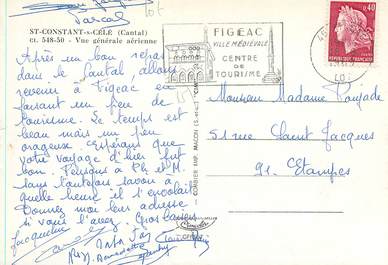 Pascal
ST-CONSTANT-s/-CÉLÉ (Cantal)
ct. 548-50 - Vue générale aérienne
Après un bon repas
dans le Cantal, allons
revenir à Figeac en
faisant un peu de
tourisme. Le temps est
beau mais un peu
orageux. Espérons que
votre voyage d'hier fut
bon. Pensons à Ph. et M.
sans toutefois savoir à
quelle heure il l'
Donnez moi leur adresse
si vous l'avez. Gros baisers
Jacqueline
FIGEAC
VILLE MÉDIÉVALE
CENTRE
DE
TOURISME
46
LOT
0,40
REPUBLIQUE FRANÇAISE
Monsieur Madame Poujade
51 rue Saint Jacques
91. Etampes
COMBIER IMP. MACON